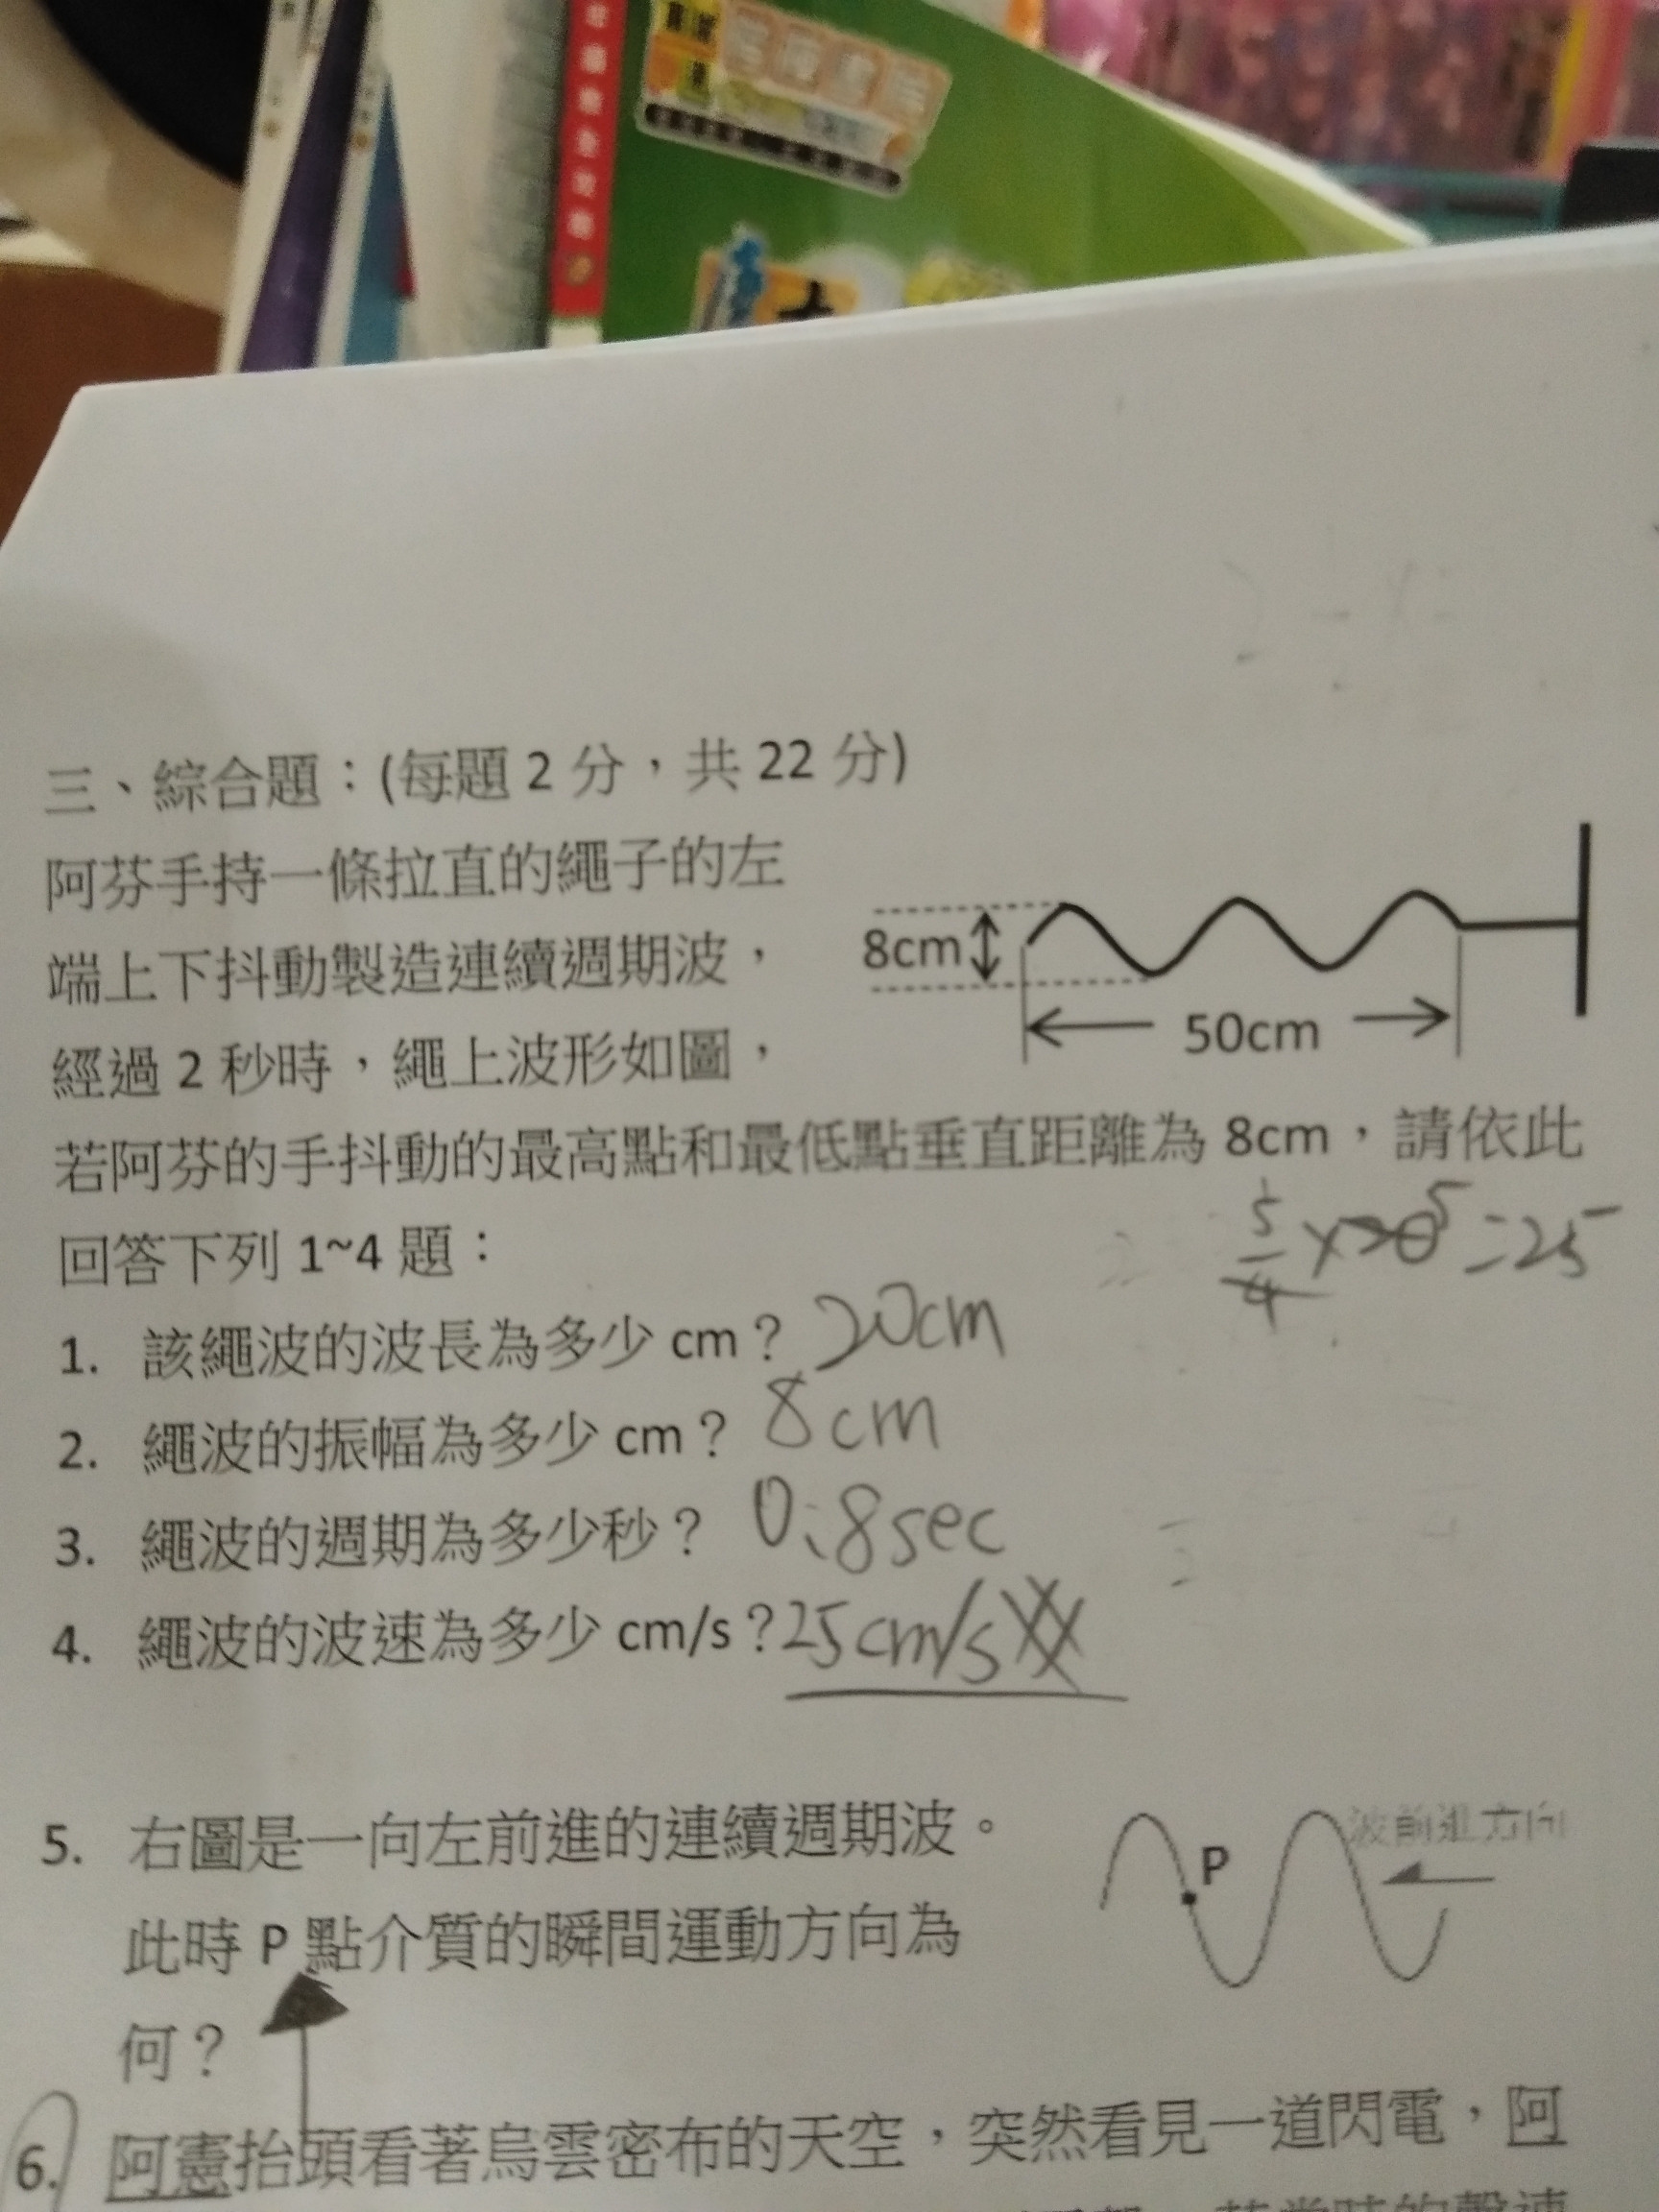 三、綜合題：(每題 2 分，共 22 分)
阿芬手持一條拉直的繩子的左
端上下抖動製造連續週期波，
經過 2 秒時，繩上波形如圖，
8cm
50cm
若阿芬的手抖動的最高點和最低點垂直距離為 8cm，請依此
回答下列 1~4 題：
5/4 × 20 5 = 25
1. 該繩波的波長為多少 cm？ 20cm
2. 繩波的振幅為多少 cm？ 8cm
3. 繩波的週期為多少秒？ 0.8sec
4. 繩波的波速為多少 cm/s？25cm/s
5. 右圖是一向左前進的連續週期波。
此時 P 點介質的瞬間運動方向為
何？
P
波前進方向
6. 阿憲抬頭看著烏雲密布的天空，突然看見一道閃電，阿